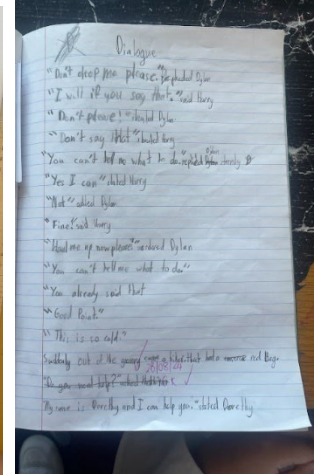 Dialogue
"Don't drop me please." pleaded Dylan
"I will if you say that." said Harry
"Don't please!" shouted Dylan
"Don't say that" shouted Harry
"You can't tell me what to do." replied Dylan
"Yes I can" stated Harry
"Not" added Dylan
"Fine" said Harry
"Haul me up now please" Dylan
"You can't tell me what to do."
"You already said that
"Good Point."
"This is so cold."
Suddenly out of the came a that had a and Bag.
"Do you need help?" asked
"My name is Dorothy and I can help you." stated Dorothy